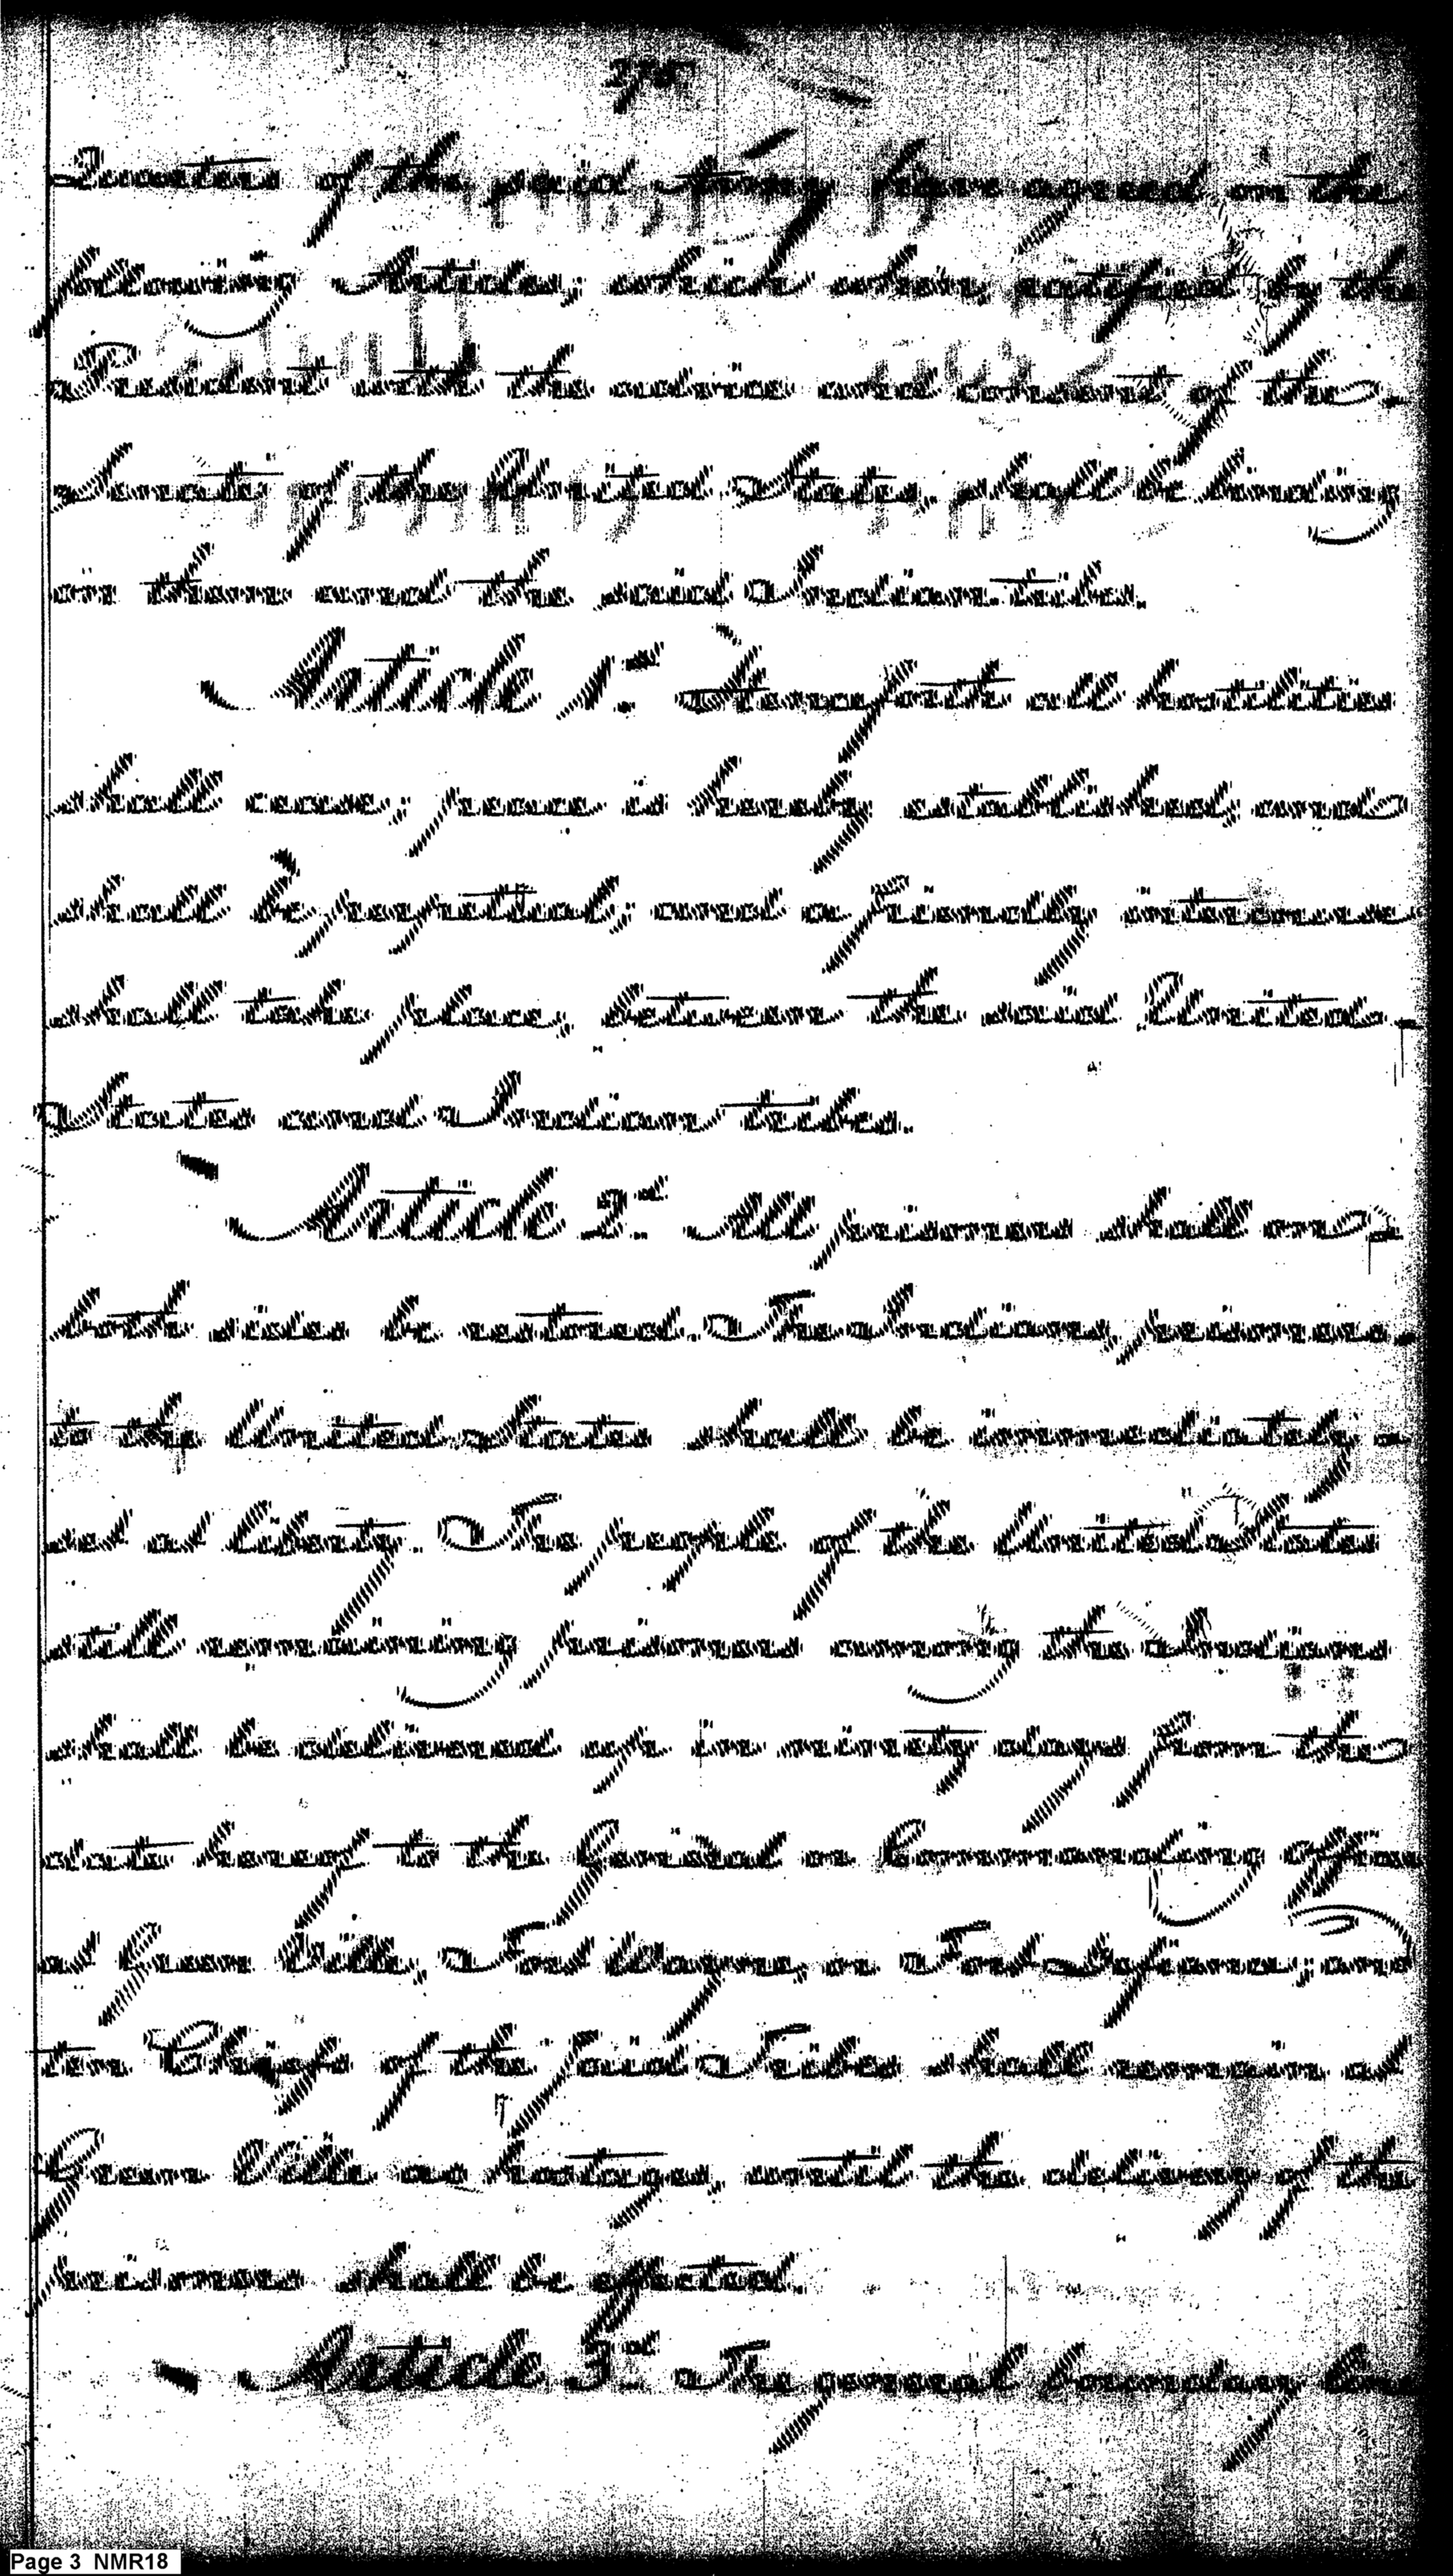 275
Quarters of the said Army have agreed on the
following Articles; which when ratified by the
President with the advice and consent of the
Senate of the United States, shall be binding
on them and the said Indian tribes.
Article 1st. Henceforth all hostilities
shall cease; peace is hereby established, and
shall be perpetual; and a friendly intercourse
shall take place, between the said United
States and Indian tribes.
Article 2d. All prisoners shall on
both sides be restored. The Indians, prisoners
to the United States shall be immediately
set at liberty. The people of the United States
still remaining prisoners among the Indians
shall be delivered up in ninety days from the
date hereof to the General or Commanding Officer
at Green Ville, Fort Wayne, or Fort Defiance; and
ten Chiefs of the said Tribes shall remain at
Green Ville as hostages, until the delivery of the
prisoners shall be effected.
Article 3d. The general boundary line
Page 3 NMR18